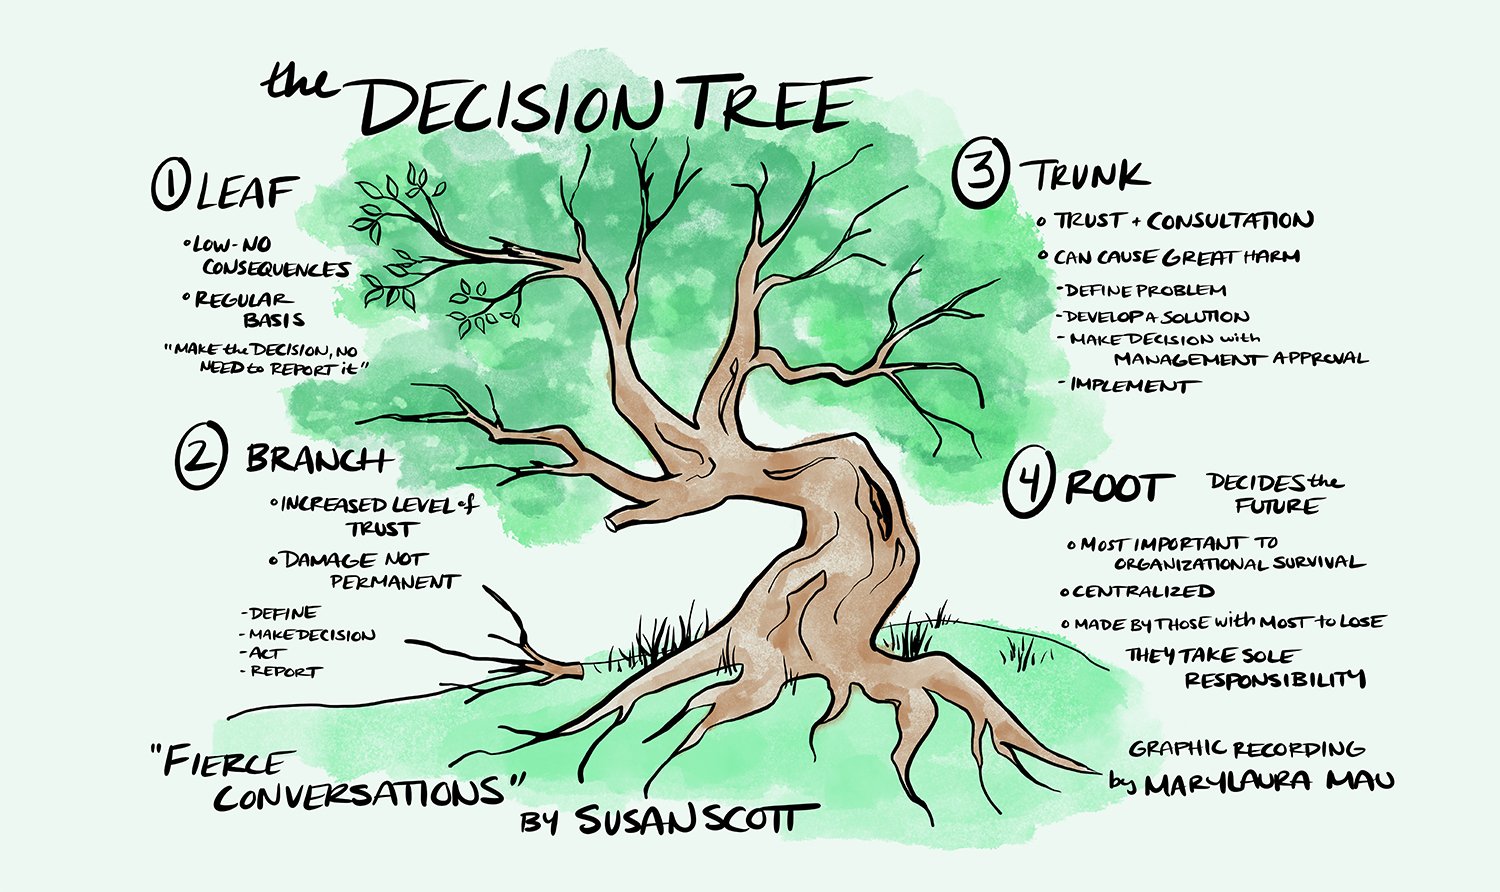 the DECISION TREE
① LEAF
• LOW-NO
CONSEQUENCES
• REGULAR
BASIS
"MAKE the DECISION, NO
NEED to REPORT it"
② BRANCH
• INCREASED LEVEL of
TRUST
• DAMAGE NOT
PERMANENT
- DEFINE
- MAKE DECISION
- ACT
- REPORT
③ TRUNK
• TRUST + CONSULTATION
• CAN CAUSE GREAT HARM
- DEFINE PROBLEM
- DEVELOP A SOLUTION
- MAKE DECISION with
MANAGEMENT APPROVAL
- IMPLEMENT
④ ROOT DECIDES the
FUTURE
• MOST IMPORTANT TO
ORGANIZATIONAL SURVIVAL
• CENTRALIZED
• MADE BY THOSE with MOST to LOSE
THEY TAKE SOLE
RESPONSIBILITY
"FIERCE
CONVERSATIONS"
BY SUSAN SCOTT
GRAPHIC RECORDING
by MARYLAURA MAU